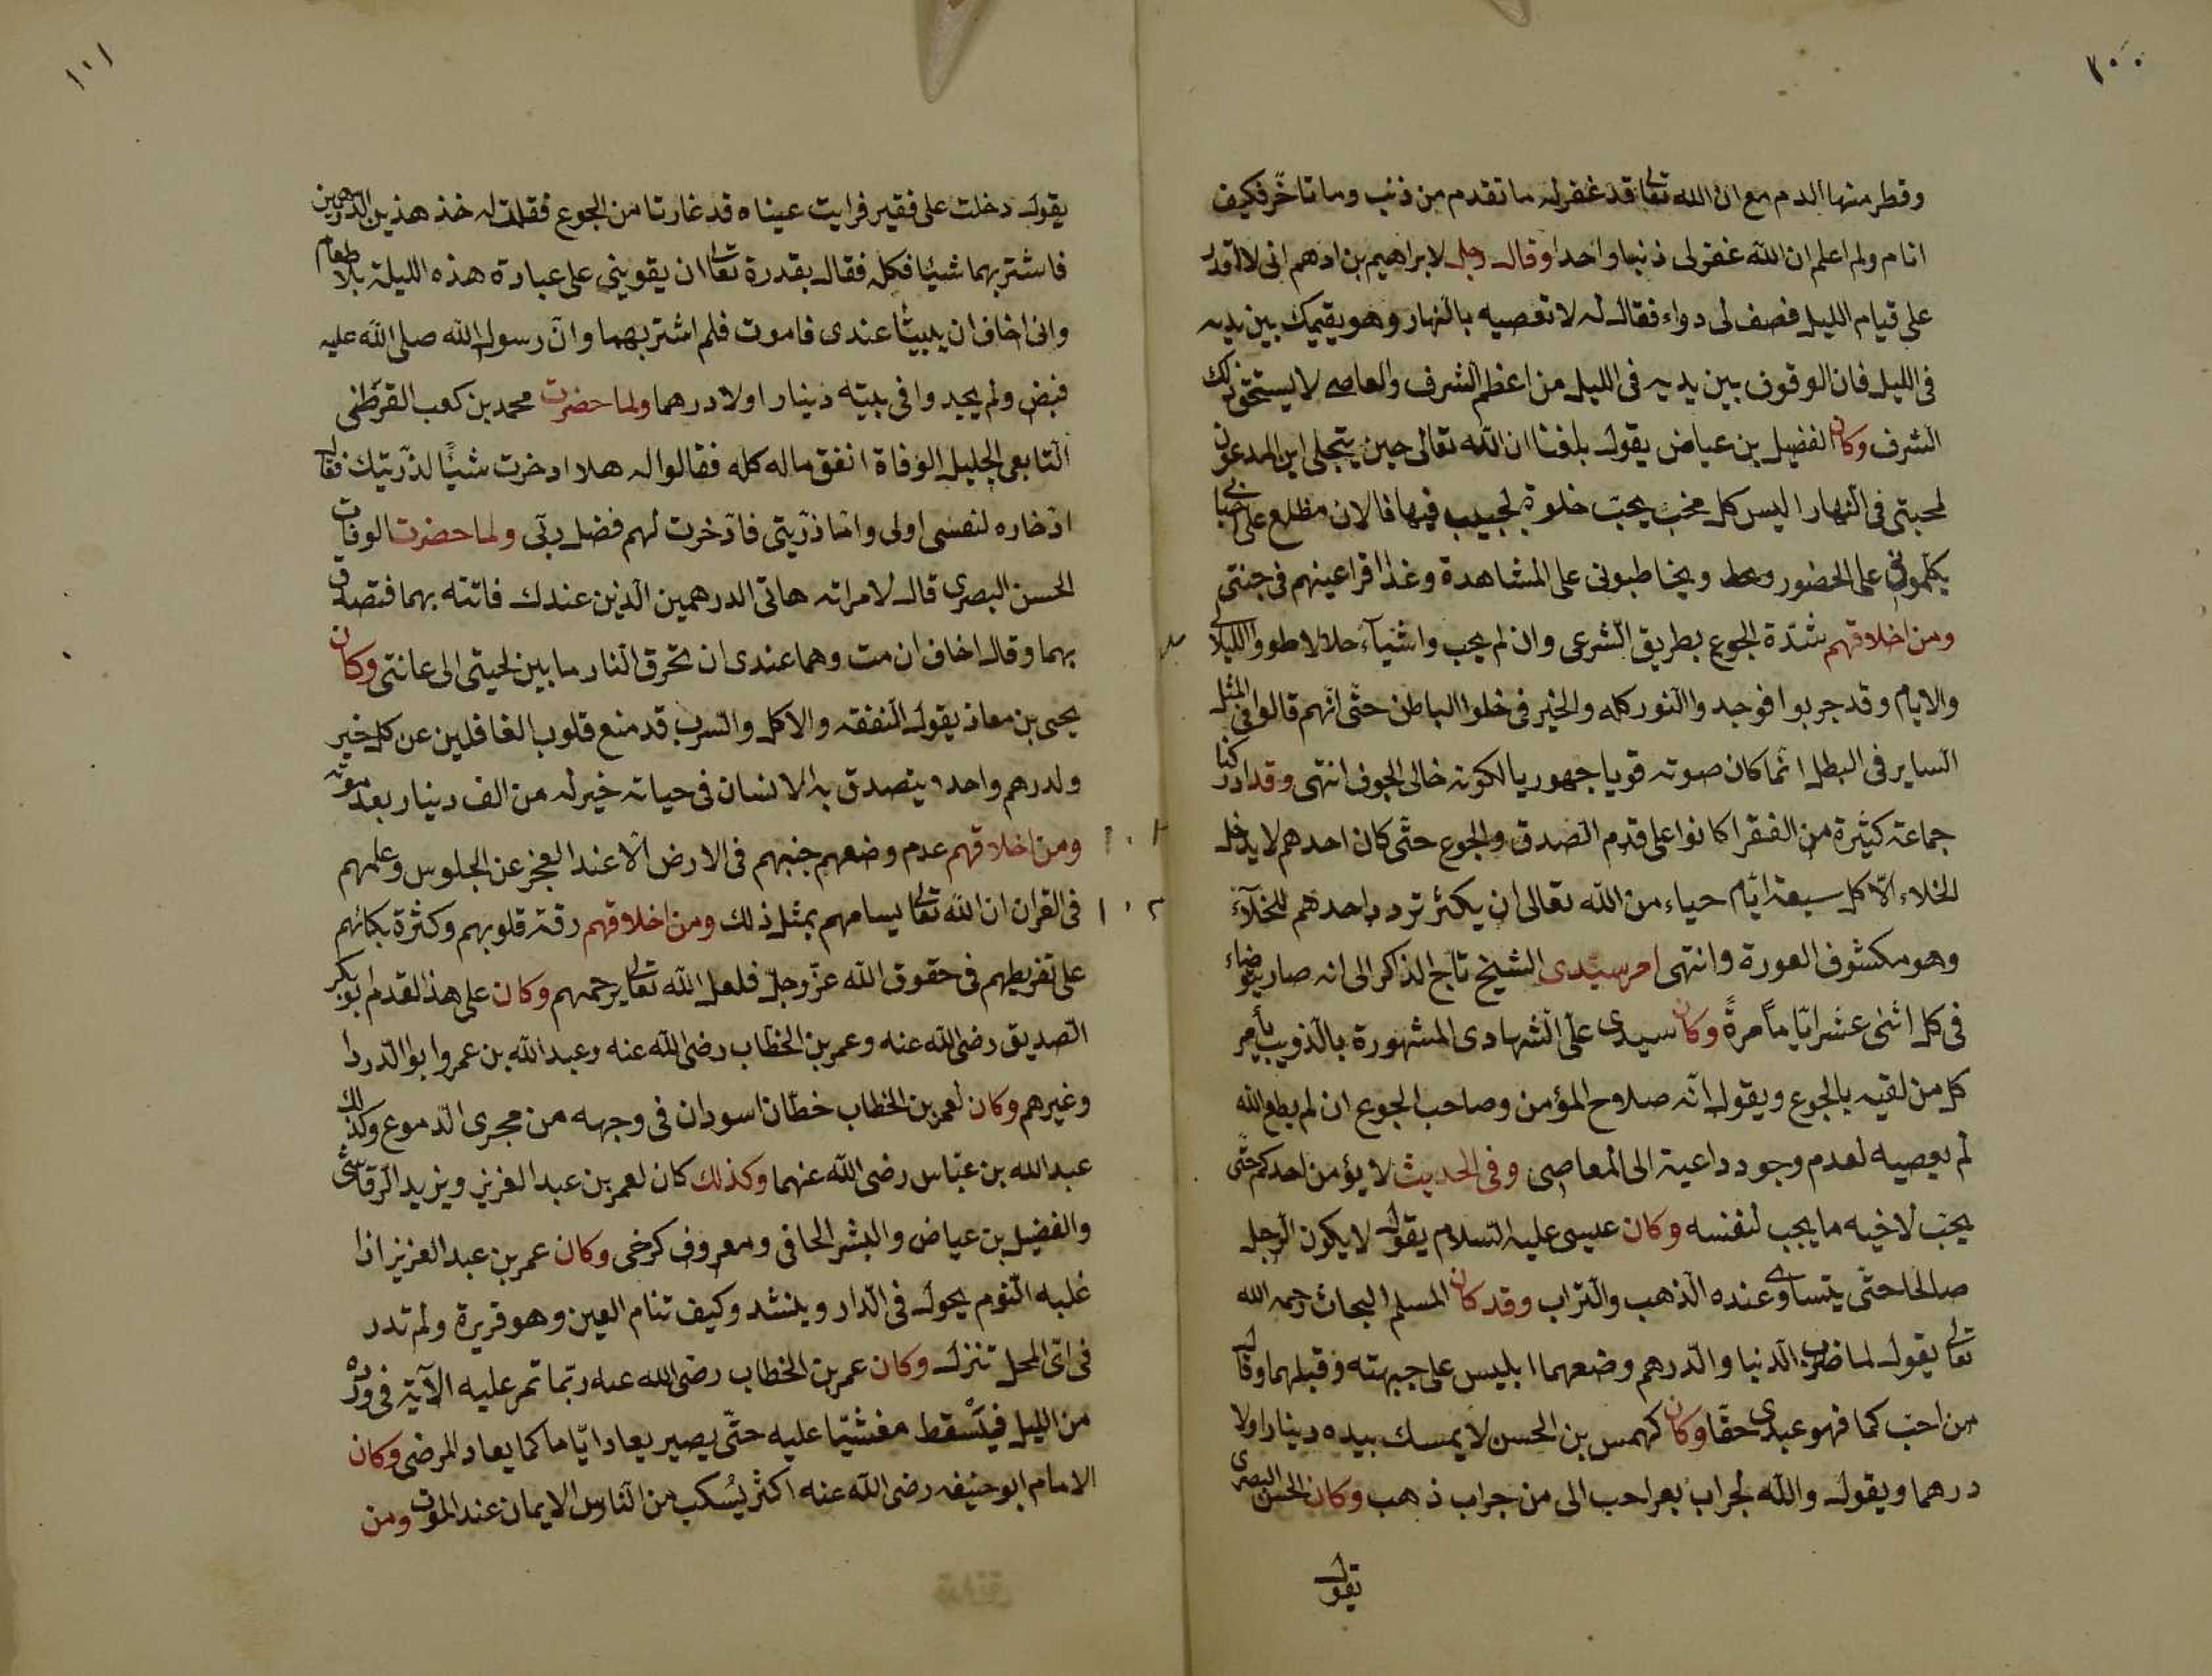 ١٠٠
وقطر منها الدم مع ان الله تعالى قد غفر له ما تقدم من ذنب وما تاخّر فكيف
انام ولم اعلم ان الله غفر لى ذنبا واحدا وقال رجل لابراهيم بن ادهم انى لا اقدر
على قيام الليل فصف لى دواء فقال له لا تعصيه بالنهار وهو يقيمك بين يديه
فى الليل فان الوقوف بين يديه فى الليل من اعظم الشرف والعاصى لا يستحق ذلك
الشرف وكان الفضيل بن عياض يقول بلغنا ان الله تعالى حين يتجلى اين المدعون
لمحبتى فى النهار اليس كل محب يحبّ خلوة لحبيب فيها فالان مطلع على احبابى
يكلمونى على الحضور ويخاطبونى على المشاهدة وغدا اقر اعينهم فى جنتى
ومن اخلاقهم شدّة الجوع بطريق الشرعى وان لم يجب واشياء حلالا طووا الليالى
والايام وقد جربوا فوجدوا النور كله والخير فى خلوا الباطن حتّى انّهم قالوا فى المثل
الساير فى البطل انّما كان صوته قويا جهوريا لكونه خالى الجوف انتهى وقد ادركنا
جماعة كثيرة من الفقرا كانوا على قدم الصدق والجوع حتّى كان احدهم لا يدخل
الخلاء الّا كل سبعة ايّام حياء من الله تعالى ان يكثر تردد احدهم للخلاء
وهو مكشوف العورة وانتهى امر سيّدى الشيخ تاج الذاكر الى انه صار يتوضاء
فى كل اثنى عشر ايّاما مرةً وكان سيدى على الشهادى المشهورة بالذويب يأمر
كل من لقيه بالجوع ويقول انّه صلاح المؤمن وصاحب الجوع ان لم يطع الله
لم يعصيه لعدم وجود داعية الى المعاصى وفى الحديث لا يؤمن احدكم حتّى
يحبّ لاخيه ما يحب لنفسه وكان عيسى عليه السلام يقول لا يكون الرجل
صالحا حتّى يتساوى عنده الذهب والتراب وقد كان المسلم البحات رحمه الله
تعالى يقول لما ضرب الدنيا والدّرهم وضعهما ابليس على جبهته وقبلهما وقال
من احبّ كما فهو عبدى حقّا وكان كهمس بن الحسن لا يمسك بيده دينارا ولا
درهما ويقول والله لجراب بعر احب الى من جراب ذهب وكان الحسن البصرى
يقول
١٠١
يقول دخلت على فقير فرايت عيناه قد غارتا من الجوع فقلت له خذ هذين الدرهمين
فاشتر بهما شيئا فكله فقال بقدرة تعالى ان يقوينى على عبادة هذه الليلة بلا طعام
وانى اخاف ان يبيتا عندى فاموت فلم اشتر بهما وانّ رسول الله صلى الله عليه
قبض ولم يجدوا فى بيته دينارا ولا درهما ولما حضرت محمد بن كعب القرظى
التابعى الجليل الوفاة انفق ماله كله فقالوا له هلا ادخرت شيئًا لذرّيتك فقال
ادّخاره لنفسى اولى وامّا ذرّيتى فادّخرت لهم فضل ربّى ولما حضرت الوفات
الحسن البصرى قال لامراته هاتى الدرهمين الّذين عندك فاتته بهما فتصدق
بهما وقال اخاف ان مت وهما عندى ان تحرق النار ما بين لحيتى الى عانتى وكان
يحيى بن معاذ يقول النفقه والاكل والشرب قد منع قلوب الغافلين عن كل خير
ولدرهم واحد يتصدق به الانسان فى حياته خير له من الف دينار بعد موته
ومن اخلاقهم عدم وضعهم جنبهم فى الارض الّا عند العجز عن الجلوس وعلمهم
فى القران ان الله تعالى يسامهم بمثل ذلك ومن اخلاقهم رقة قلوبهم وكثرة بكائهم
على تفريطهم فى حقوق الله عزّ وجلّ فلعل الله تعالى يرحمهم وكان على هذ القدم ابو بكر
الصّديق رضى الله عنه وعمر بن الخطّاب رضى الله عنه وعبد الله بن عمر وابو الدّردا
وغيرهم وكان لعمر بن الخطاب خطّان اسودان فى وجهه من مجرى الدّموع وكذلك
عبد الله بن عبّاس رضى الله عنهما وكذلك كان لعمر بن عبد العزيز ويزيد الرقاشى
والفضيل بن عياض والبشر الحافى ومعروف كرخى وكان عمر بن عبد العزيز اذا
غلبه النّوم يجول فى الدّار وينشد وكيف تنام العين وهو قريرة ولم تدر
فى اىّ المحل تنزل وكان عمر بن الخطاب رضى الله عنه ربّما تمر عليه الآية فى ورده
من الليل فيَسْقط مغشيّا عليه حتّى يصير يعاد ايّاما كما يعاد المرضى وكان
الامام ابو حنيفه رضى الله عنه اكثر يُسكب من النّاس الايمان عند الموت ومن